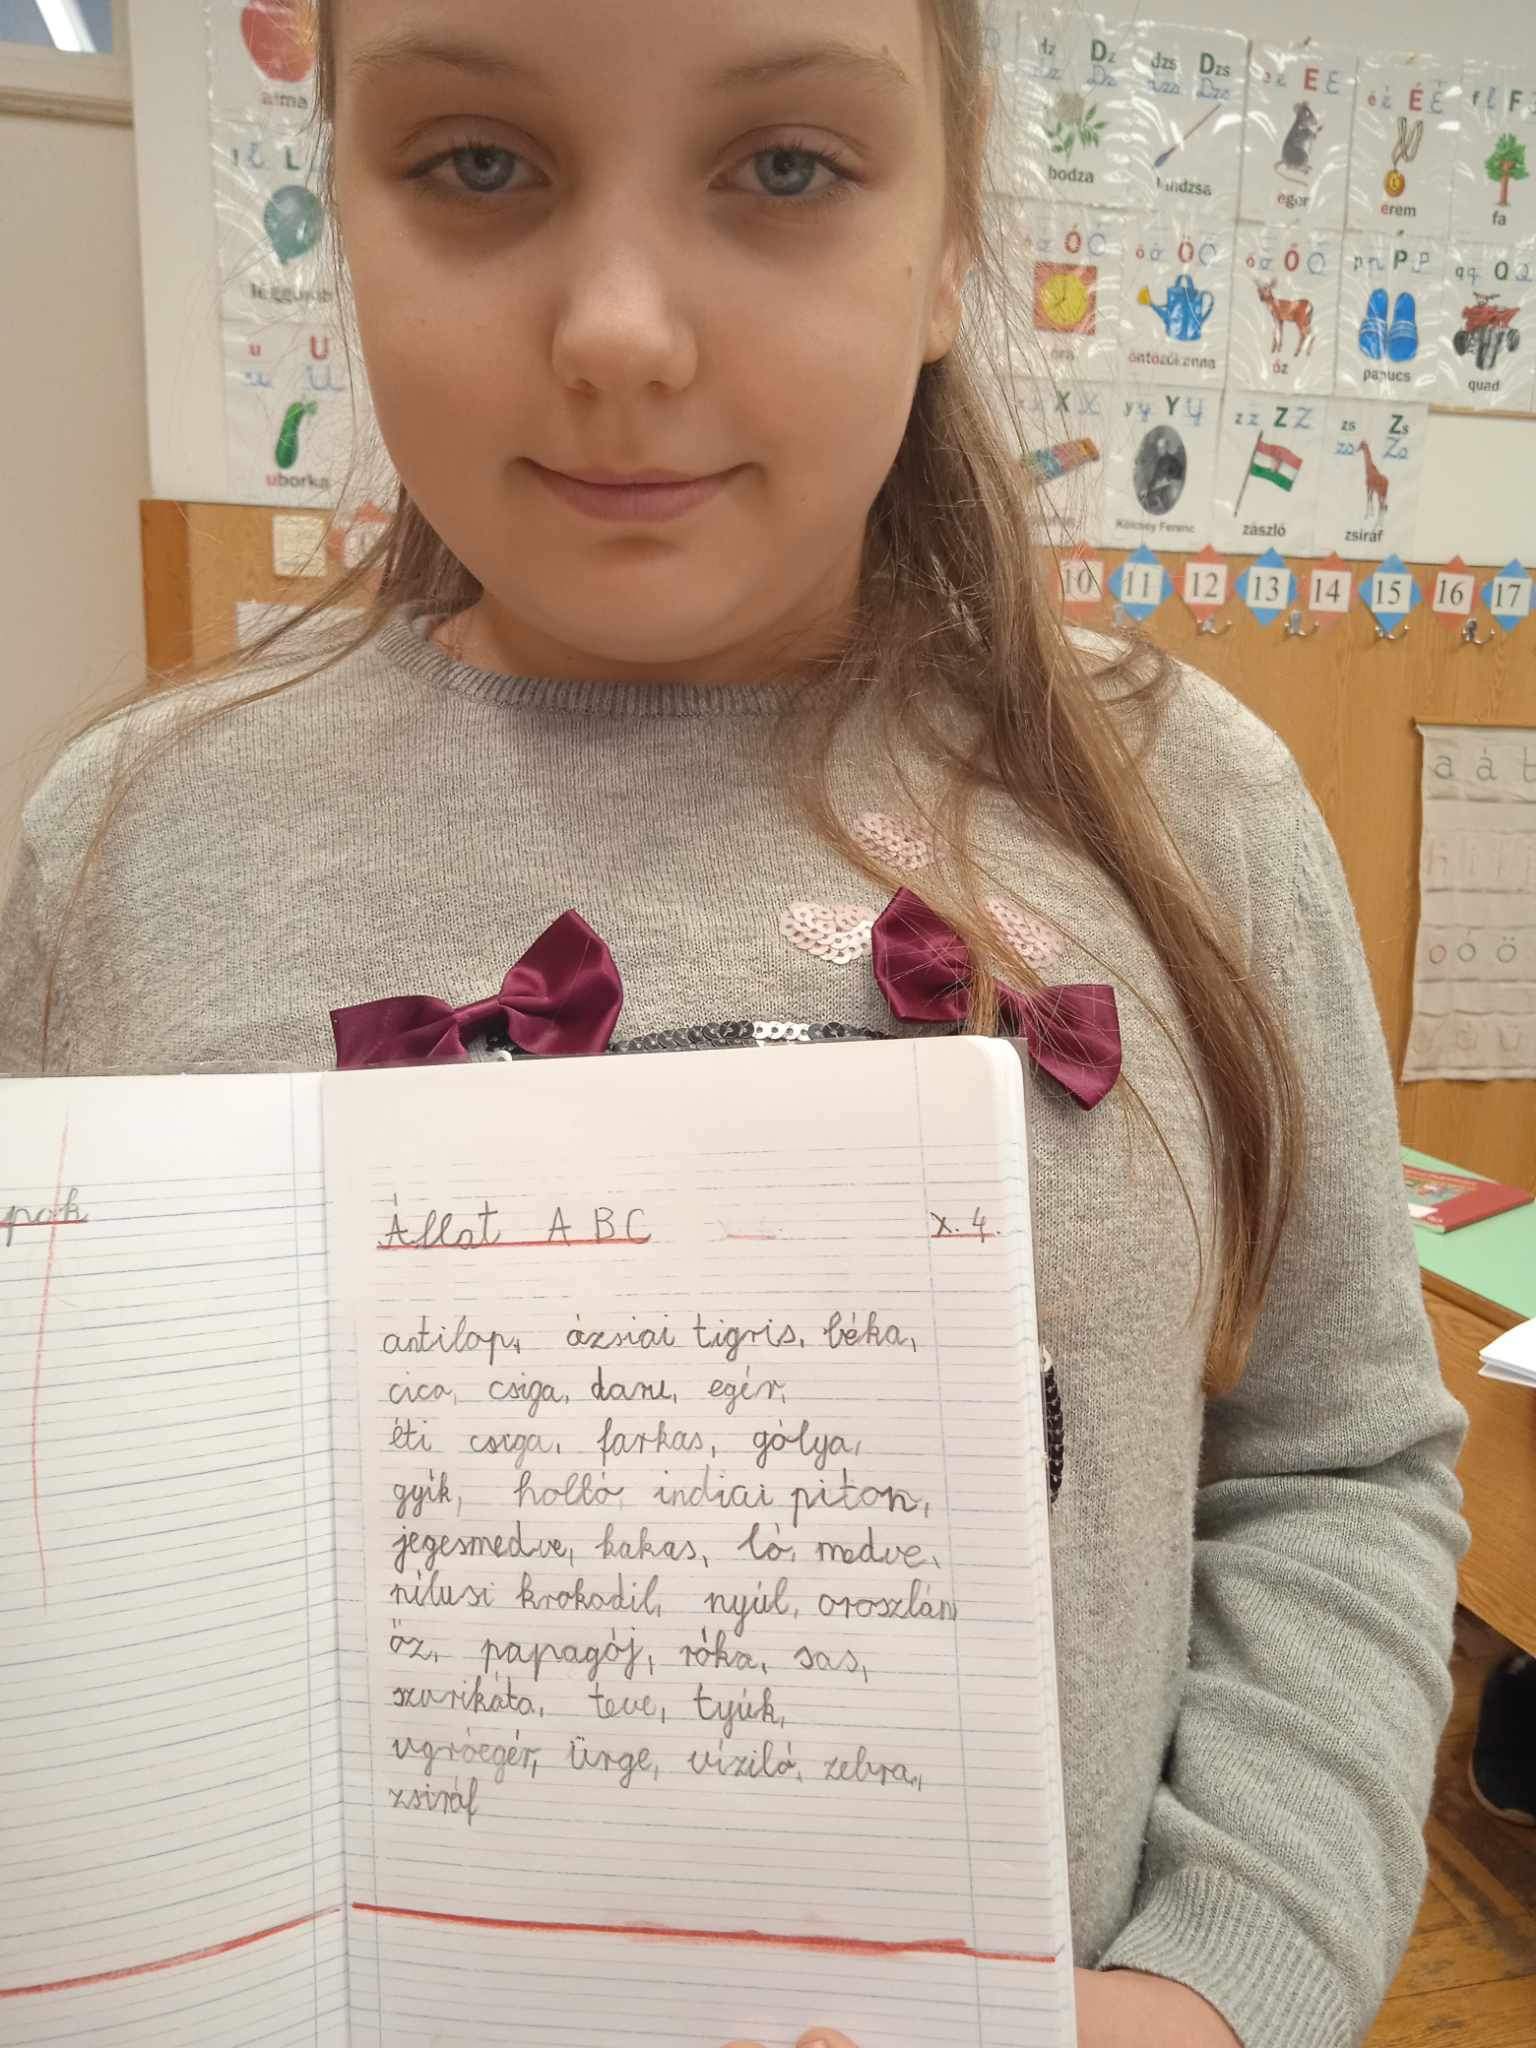 alma
l L
u U
uborka
dz Dz
bodza
dzs Dzs
e E
egér
é É
érem
f F
fa
ó Ó
óra
ö Ö
öntözőkanna
ő Ő
őz
p P
papucs
q Q
quad
X
y Y
Kölcsey Ferenc
z Z
zászló
zs Zs
zsiráf
10 11 12 13 14 15 16 17
a á
o ó ö
Állat ABC X. 4.
antilop, ázsiai tigris, béka,
cica, csiga, daru, egér,
éti csiga, farkas, gólya,
gyík, holló, indiai piton,
jegesmedve, kakas, ló, medve,
nílusi krokodil, nyúl, oroszlán
őz, papagáj, róka, sas,
szurikáta, teve, tyúk,
ugróegér, ürge, víziló, zebra,
zsiráf